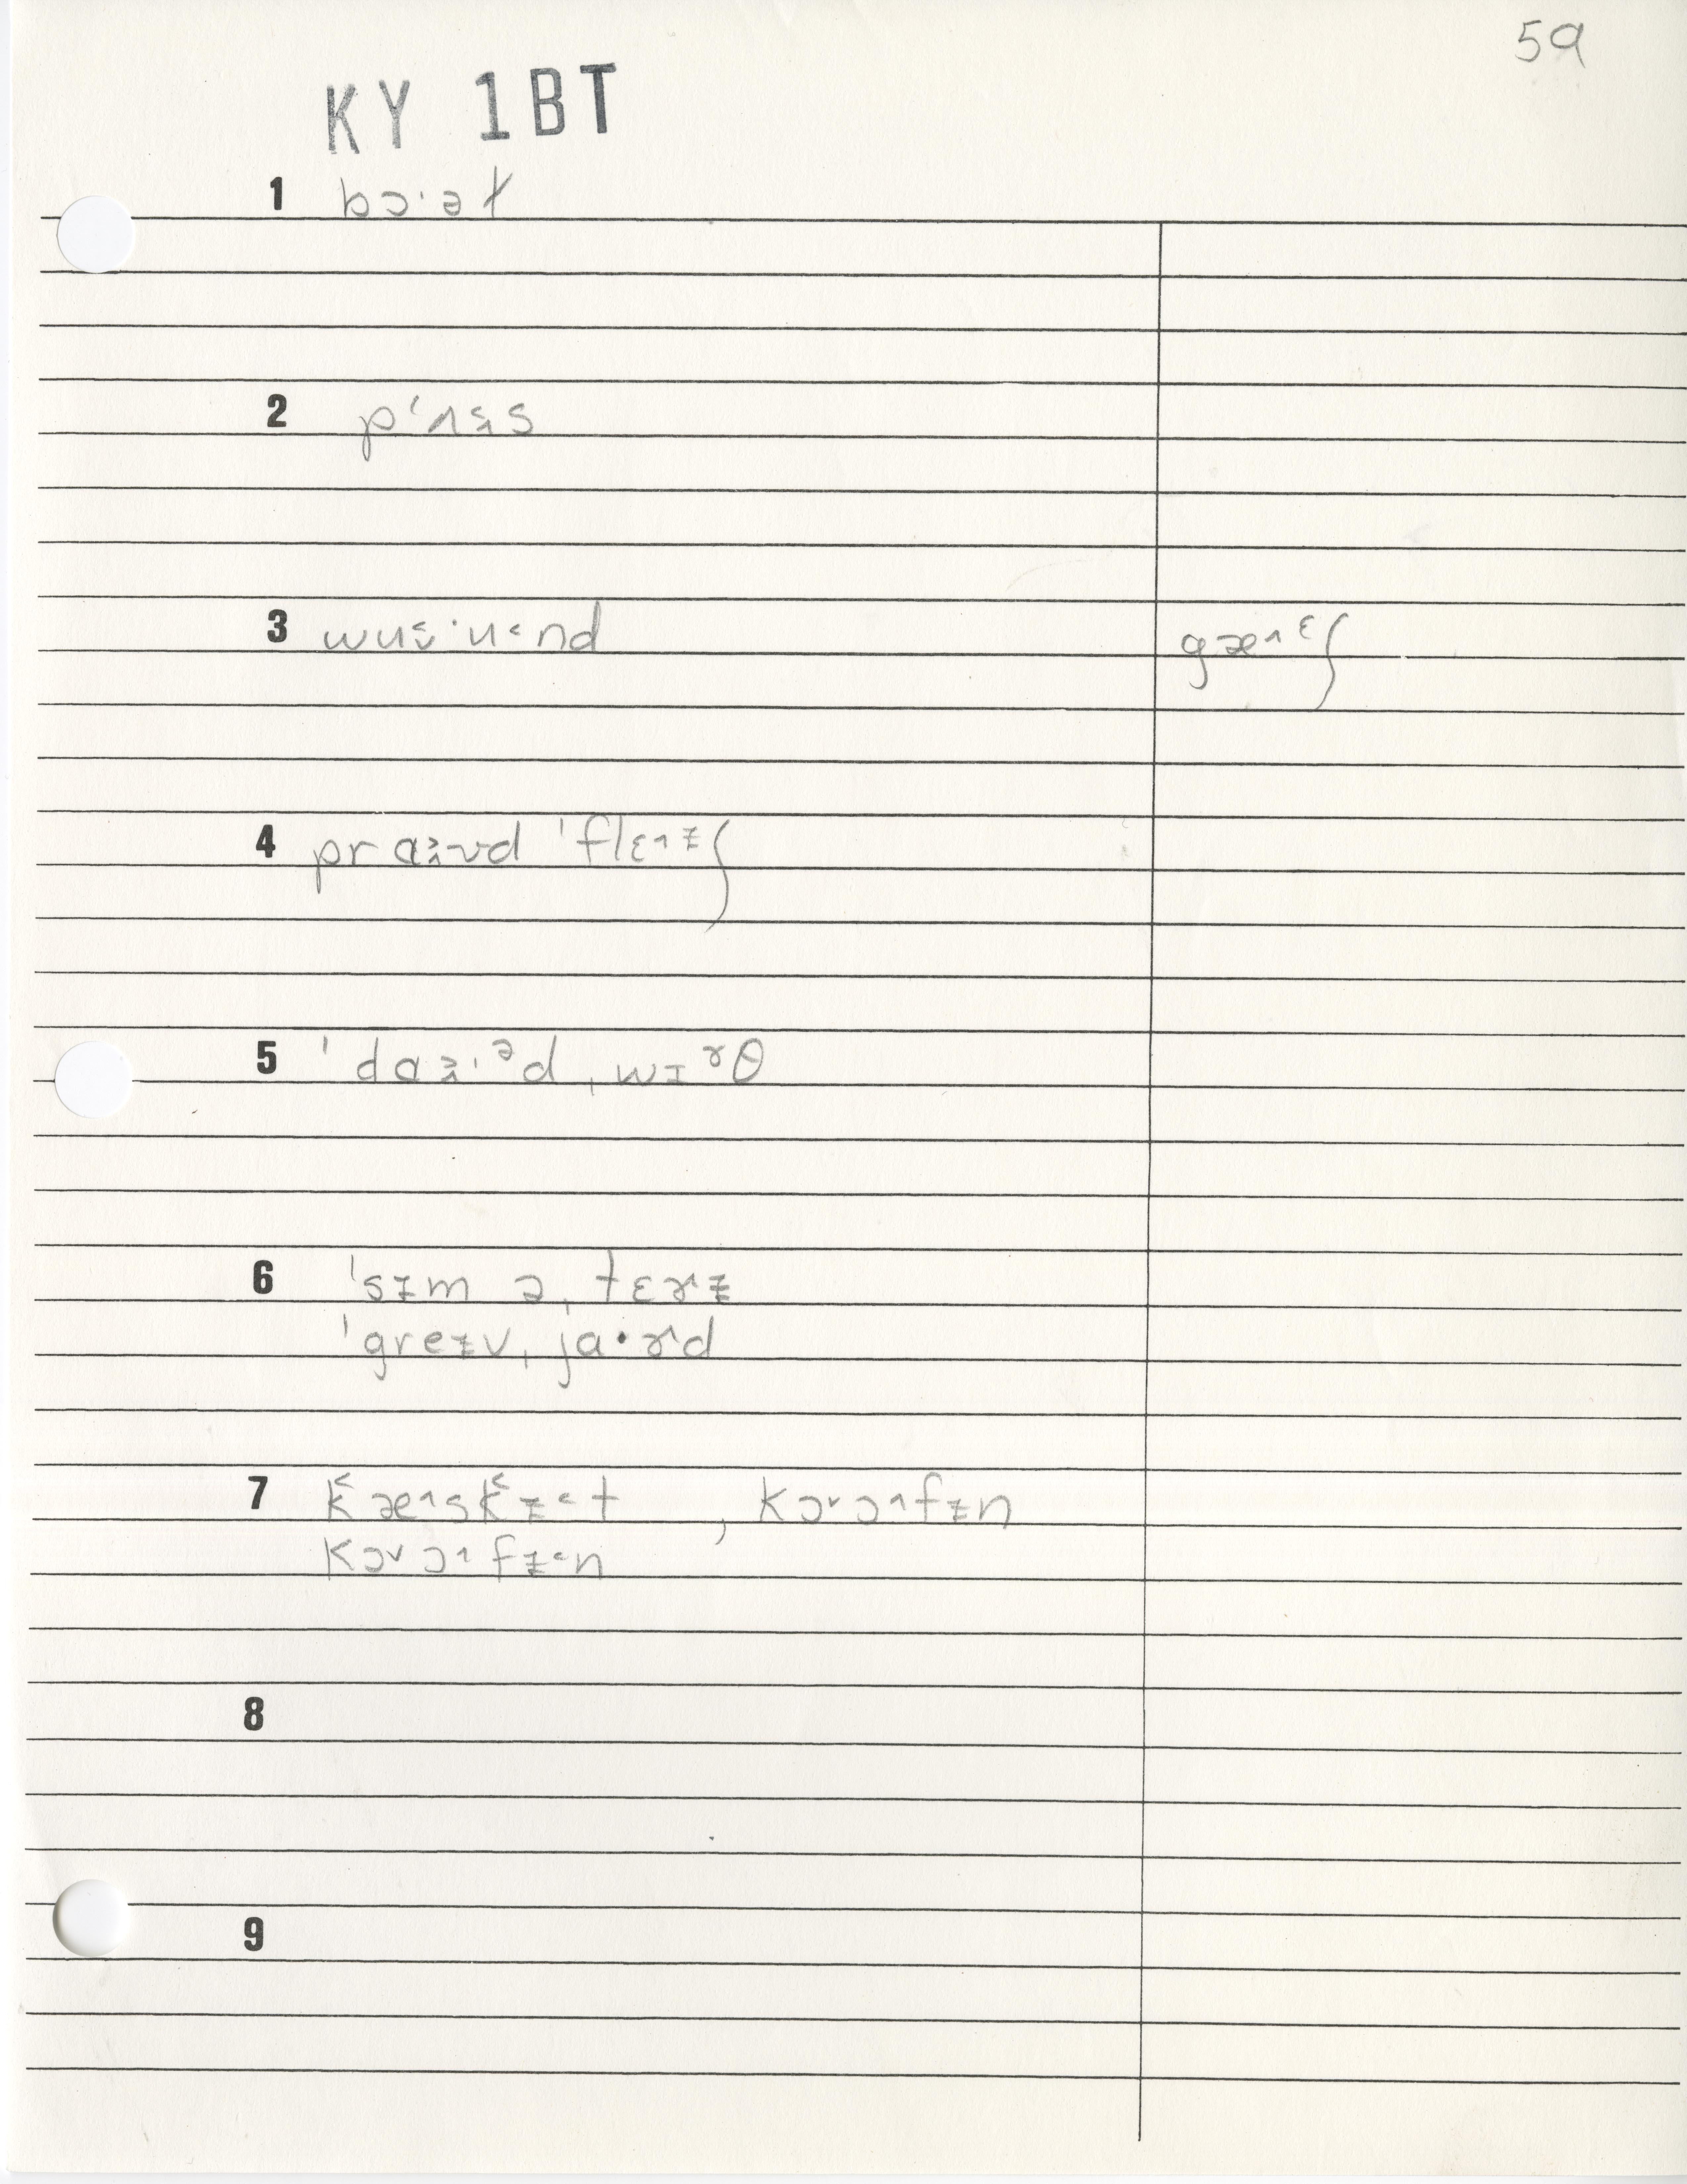 59
KY 1BT
1 bɔ·əɫ
2 p‘ʌs˂s
3 wu˂·u˂nd gæ˄ɛʃ
4 praᵻ˅vd ˈflɛ˄ᵻʃ
5 ˈdaᵻ·əd ˌwɪɚθ
6 ˈsɪm ə ˌtɛɚᵻ
ˈgreᵻv ˌja·ɚd
7 k˂æ˄sk˂ᵻ˂t , kɔ˅ɔ˄fᵻn
kɔ˅ɔ˄fᵻ˂n
8
9